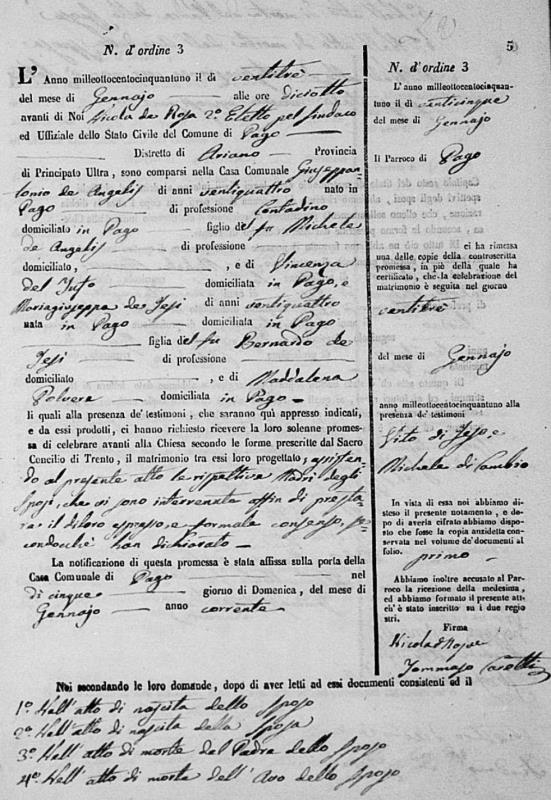 5
N. d'ordine 3
L'Anno milleottocentocinquantuno il dì ventitrè
del mese di Gennajo alle ore diciotto
avanti di Noi Nicola de Rosa 2.º Eletto pel Sindaco
ed Uffiziale dello Stato Civile del Comune di Pago
Distretto di Ariano Provincia
di Principato Ultra, sono comparsi nella Casa Comunale Giuseppan-
tonio de Angelis di anni ventiquattro nato in
Pago di professione Contadino
domiciliato in Pago figlio del fu Michele
de Angelis di professione
domiciliato, , e di Vincenza
del Tufo domiciliata in Pago, e
Mariagiuseppa de Jesi di anni ventiquattro
nata in Pago domiciliata in Pago
figlia del fu Bernardo de
Jesi di professione
domiciliato , e di Maddalena
Polvere domiciliata in Pago
li quali alla presenza de' testimoni, che saranno quì appresso indicati,
e da essi prodotti, ci hanno richiesto ricevere la loro solenne promes-
sa di celebrare avanti alla Chiesa secondo le forme prescritte dal Sacro
Concilio di Trento, il matrimonio tra essi loro progettato; assisten-
do al presente atto le rispettive Madri degli
Sposi, che vi sono intervenute affin di presta-
re il di loro espresso, e formale consenso, se-
condocchè han dichiarato
La notificazione di questa promessa è stata affissa sulla porta della
Casa Comunale di Pago nel
dì cinque giorno di Domenica, del mese di
Gennajo anno corrente
N. d'ordine 3
L'anno milleottocentocinquan-
tuno il dì venticinque
del mese di Gennajo
Il Parroco di Pago
ci ha rimessa
una delle copie della controscritta
promessa, in piè della quale ha
certificato, che la celebrazione del
matrimonio è seguita nel giorno
ventitrè
del mese di Gennajo
anno milleottocentocinquantuno alla
presenza de' testimoni
Vito di Jeso, e
Michele di
In vista di essa noi abbiamo di-
steso il presente notamento, e do-
po di averla cifrato abbiamo dispo-
sto che fosse la copia anzidetta con-
servata nel volume de' documenti al
folio. primo
Abbiamo inoltre accusato al Par-
roco la ricezione della medesima,
ed abbiamo formato il presente atto,
ch'è stato inscritto su i due regi-
stri.
Firma
Nicola
Tommaso
Noi secondando le loro domande, dopo di aver letti ad essi documenti consistenti ed il
1º. Nell'atto di nascita dello sposo
2º. Nell'atto di nascita della sposa
3º. Nell'atto di morte del Padre dello sposo
4º. Nell'atto di morte dell'Avo dello sposo